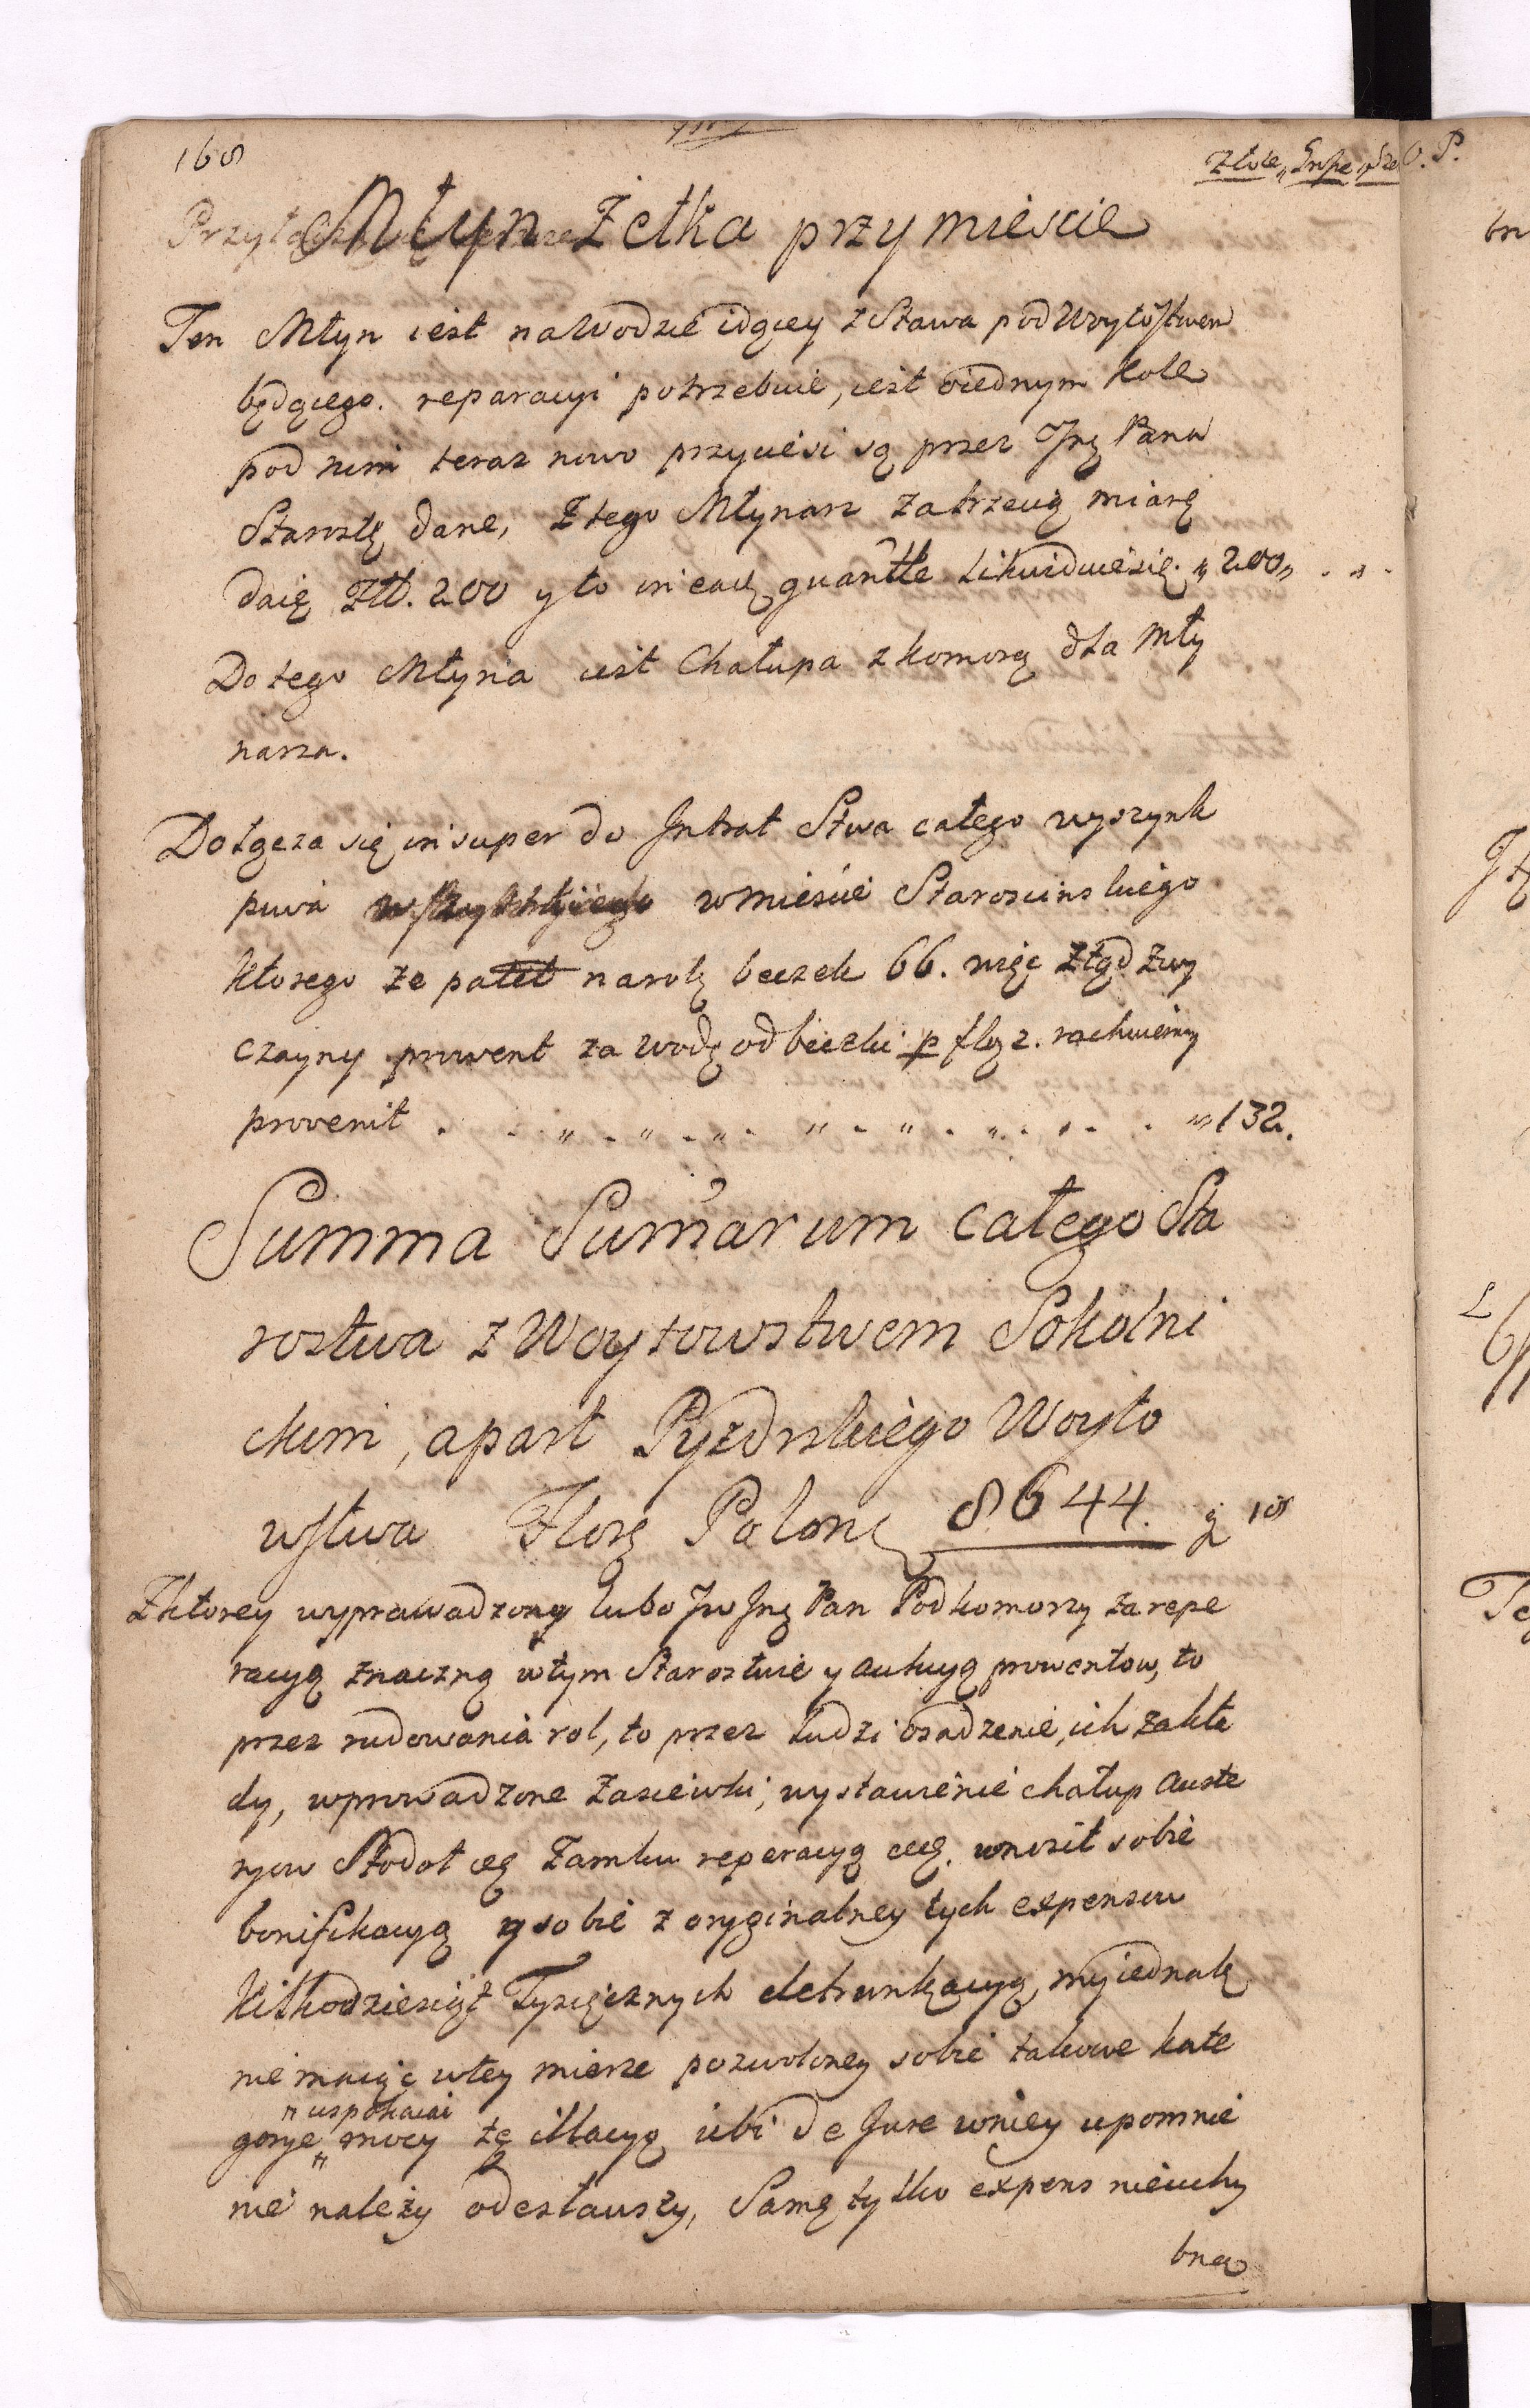 168
Złote, Gr
Młyn Żełka przy mieście
Ten Młyn iest na Wodzie idącey z Stawa pod Woytostwem
będącego. reparacyi potrzebuie, iest o iednym kole
pod nim teraz nowo przyciesi są przez Jmę Pana
Starostę dane, Z tego Młynarz za trzecią miarę
daię Złł. 200 y to in eadę quantte Likwiduie się. „200„ . „ .
Do tego Młyna iest Chałupa z komorą dla Mły
narza.
Dołącza się in super do Intrat Stwa całego wyszynk
piwa w mieście Starościnskiego
ktorego że patet na rok beczek 66. więc ztąd zwy
czayny prowent za wodę od beczki p fl 2. rachuiemy
provenit . . „ . „ . „ . „ . „ . „ . . . „132.
Summa Sumarum całego Sta
rostwa z Woytowstwem Sokolni
ckim, apart Pyzdrskiego Woyto
wstwa Flore Polone 8644. g 18
Z ktorey wyprawadzony lubo Jw Jmę Pan Podkomorzy za repe
racyą znaczną w tym Starostwie y aukcyą prowentow, to
przez rudowania rol, to przez ludzi osadzenie, ich zakła
dy, wprowadzone Zasiewki, wystawienie chałup Auste
ryow Stodoł etc Zamku reperacyą etc. wnosił sobie
bonifikacyą y sobie z oryginalney tych expensow
Kilkodziesiąt Tysięcznych detrunkacyą, my iednak
nie maiąc w tey mierze pozwoloney sobie takowe kate
„uspokaiai
gorye „ mocy tę illacyą ubi de Jure w niey upomnie
nie należy odesławszy, Samę tylko expens nieuchy
bną